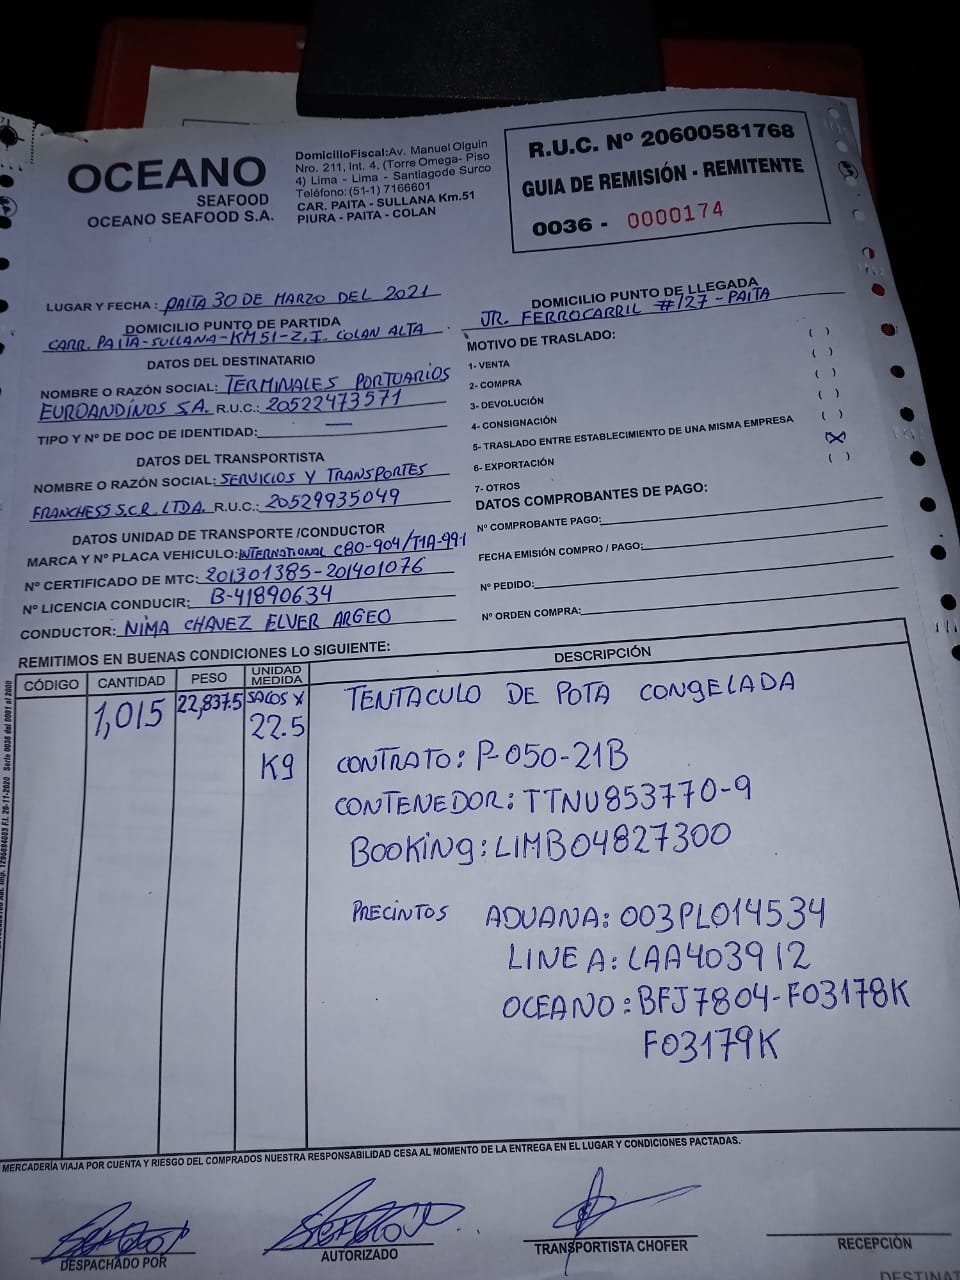 OCEANO
SEAFOOD
OCEANO SEAFOOD S.A.
DomicilioFiscal:Av. Manuel Olguin
Nro. 211, Int. 4, (Torre Omega- Piso
4) Lima - Lima - Santiagode Surco
Teléfono: (51-1) 7166601
CAR. PAITA - SULLANA Km.51
PIURA - PAITA - COLAN
R.U.C. Nº 20600581768
GUIA DE REMISIÓN - REMITENTE
0036 - 0000174
LUGAR Y FECHA : PAITA 30 DE MARZO DEL 2021
DOMICILIO PUNTO DE PARTIDA
CARR. PAITA-SULLANA-KM 51-Z.I. COLAN ALTA
DATOS DEL DESTINATARIO
NOMBRE O RAZÓN SOCIAL: TERMINALES PORTUARIOS
EUROANDINOS S.A. R.U.C.: 20522473571
TIPO Y Nº DE DOC DE IDENTIDAD: —
DATOS DEL TRANSPORTISTA
NOMBRE O RAZÓN SOCIAL: SERVICIOS Y TRANSPORTES
FRANCHESS S.C.R. LTDA. R.U.C.: 20529935049
DATOS UNIDAD DE TRANSPORTE /CONDUCTOR
MARCA Y Nº PLACA VEHICULO: INTERNATIONAL C8O-904/T1A-991
Nº CERTIFICADO DE MTC: 201301385-201401076
Nº LICENCIA CONDUCIR: B-41890634
CONDUCTOR: NIMA CHAVEZ ELVER ARGEO
DOMICILIO PUNTO DE LLEGADA
JR. FERROCARRIL #127 - PAITA
MOTIVO DE TRASLADO:
1- VENTA ( )
2- COMPRA ( )
3- DEVOLUCIÓN ( )
4- CONSIGNACIÓN ( )
5- TRASLADO ENTRE ESTABLECIMIENTO DE UNA MISMA EMPRESA ( )
6- EXPORTACIÓN (X)
7- OTROS ( )
DATOS COMPROBANTES DE PAGO:
Nº COMPROBANTE PAGO:
FECHA EMISIÓN COMPRO / PAGO:
Nº PEDIDO:
Nº ORDEN COMPRA:
REMITIMOS EN BUENAS CONDICIONES LO SIGUIENTE:
CÓDIGO CANTIDAD PESO UNIDAD MEDIDA DESCRIPCIÓN
1,015 22,837.5 SACOS X 22.5 Kg TENTACULO DE POTA CONGELADA
CONTRATO: P-050-21B
CONTENEDOR: TTNU853770-9
BOOKING: LIMB04827300
PRECINTOS ADUANA: 003PL014534
LINEA: LAA403912
OCEANO: BFJ7804-F03178K
F03179K
MERCADERÍA VIAJA POR CUENTA Y RIESGO DEL COMPRADOS NUESTRA RESPONSABILIDAD CESA AL MOMENTO DE LA ENTREGA EN EL LUGAR Y CONDICIONES PACTADAS.
DESPACHADO POR
AUTORIZADO
TRANSPORTISTA CHOFER
RECEPCIÓN